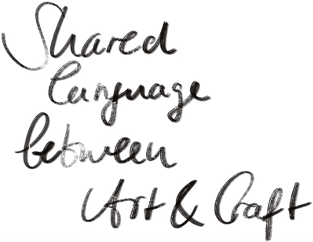 Shared
language
between
Art & Craft